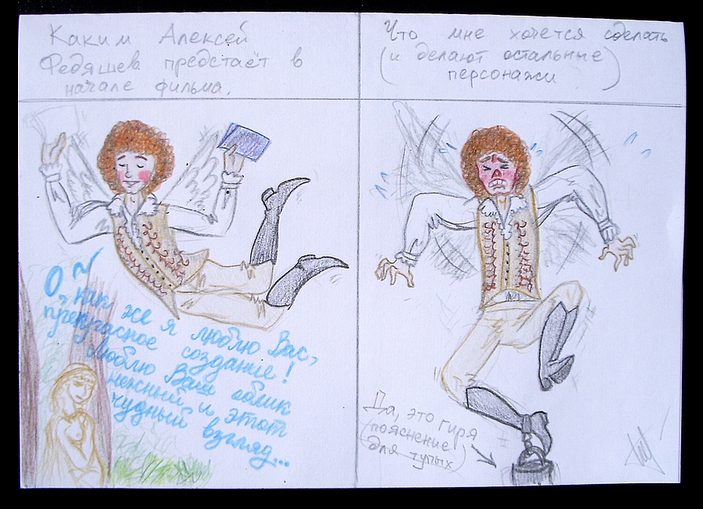 Каким Алексей
Федяшев предстаёт в
начале фильма.
Что мне хочется сделать
(и делают остальные
персонажи)
О, как же я люблю Вас,
прекрасное создание!
Люблю Ваш облик
нежный и этот
чудный взгляд...
Да, это гиря
(пояснение
для тупых)